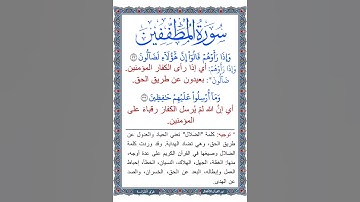 سورة المطففين
وَإِذَا رَأَوْهُمْ قَالُوا إِنَّ هَؤُلَاءِ لَضَالُّونَ
وَإِذَا رَأَوْهُمْ: أي إذا رأى الكفار المؤمنين.
ضَالُّونَ": بعيدون عن طريق الحق.
وَمَا أُرْسِلُوا عَلَيْهِمْ حَافِظِينَ
أي إنَّ الله لَمْ يُرسل الكفار رقباءَ على
المؤمنين.
* توجيه: كلمة "الضلال" تعني الحياد والعدول عن
طريق الحق، وهي تضاد الهداية. وقد وردت كلمة
الضلال وصيغها في القرآن الكريم على عدة أوجه،
منها: الغفلة، الجهل، الهلاك، النسيان، الخطأ، إحباط
العمل وإبطاله، البعد عن الحق، الخسران، والضد
عن الهدى.